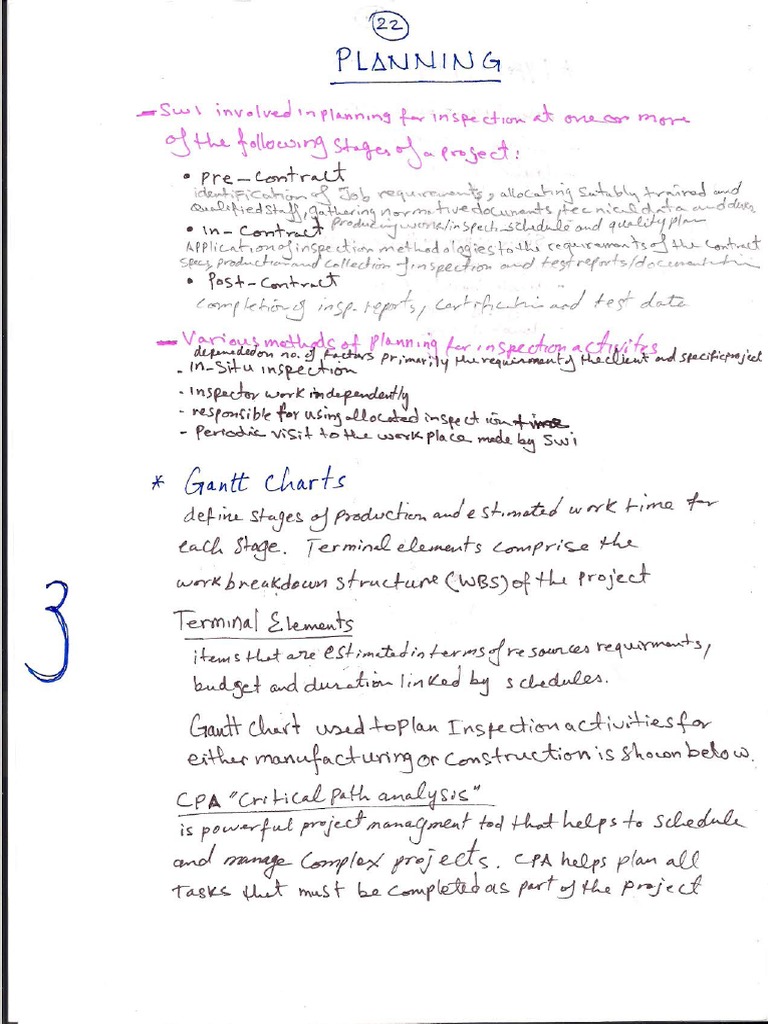 22
PLANNING
- SWI involved in planning for inspection at one or more
of the following stages of a project:
• Pre-Contract
identification of Job requirements, allocating suitably trained and
qualified staff, gathering normative documents, tecnical data and
producing work/inspect. schedule and quality plan
• In-Contract
Application of inspection methodologies to the requirements of the contract
specs, production and collection of inspection and test reports/documentation
• Post-Contract
completion of insp. reports, certification and test data
- Various methods of planning for inspection activites
depended on no. of factors primarily the requirement of the client and specific project
- In-Situ inspection
- Inspector work independently
- responsible for using allocated inspection time
- Periodic visit to the work place made by SWI
* Gantt Charts
define stages of production and estimated work time for
each stage. Terminal elements comprise the
work breakdown structure (WBS) of the project
3
Terminal Elements
items that are estimated in terms of resources requirments,
budget and duration linked by schedules.
Gantt chart used to plan Inspection activities for
either manufacturing or construction is shown below.
CPA "Critical path analysis"
is powerful project managment tool that helps to schedule
and manage complex projects. CPA helps plan all
Tasks that must be completed as part of the project